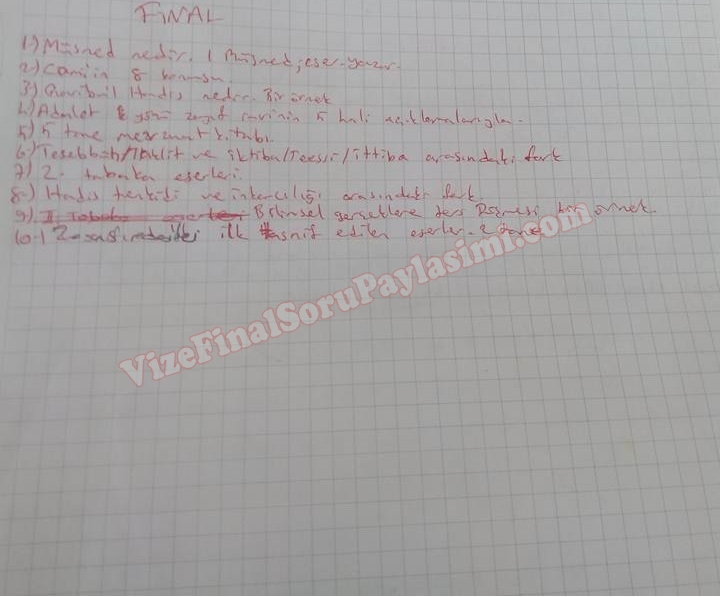 FİNAL
1-) Müsned nedir. 1 Müsned, eser-yazar.
2-) Camiin 8 konusu.
3-) Garibul Hadis nedir. Bir örnek
4-) Adalet yönü zayıf ravinin 5 hali açıklamalarıyla.
5-) 5 tane mevzuat kitabı.
6-) Teşebbüh/Taklit ve iktiba/Teessi/ittiba arasındaki fark
7-) 2. tabaka eserleri.
8-) Hadis tenkidi ve inkarcılığı arasındaki fark.
9-) Bilimsel gerçeklere ters Düşmesi bir örnek.
10-) 2. ilk tasnif edilen eserler. 2 örnek
VizeFinalSoruPaylasimi.com